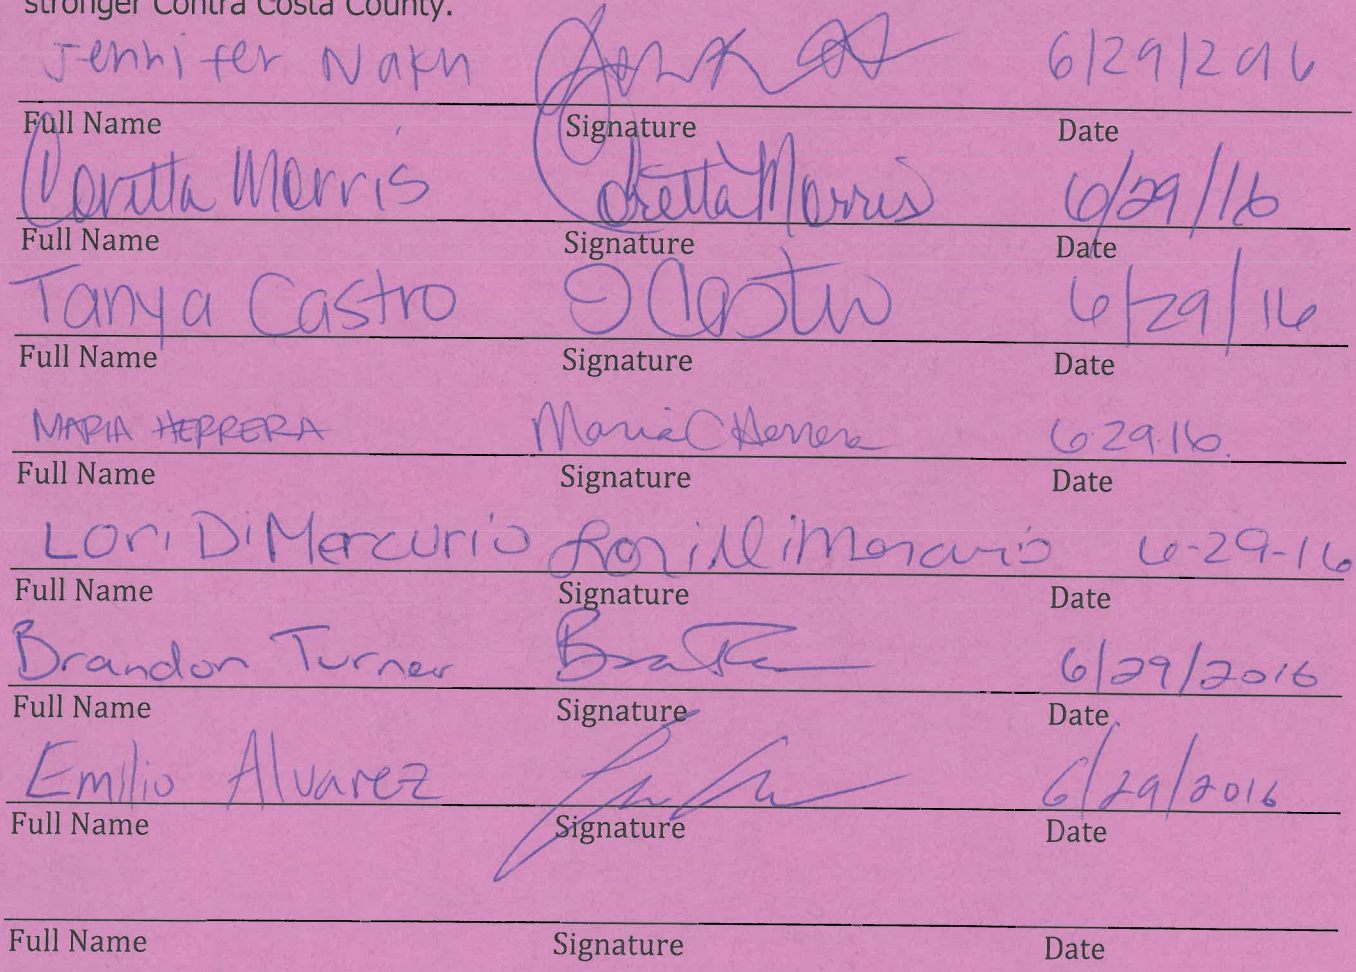 stronger Contra Costa County.
Jennifer 6/29/2016
Full Name Signature Date
Loretta Morris Loretta Morris 6/29/16
Full Name Signature Date
Tanya Castro T Castro 6/29/16
Full Name Signature Date
MARIA HERRERA Maria C Herrera 6.29.16.
Full Name Signature Date
Lori DiMercurio Lori DiMercurio 6-29-16
Full Name Signature Date
Brandon Turner 6/29/2016
Full Name Signature Date
Emilio Alvarez 6/29/2016
Full Name Signature Date
Full Name Signature Date